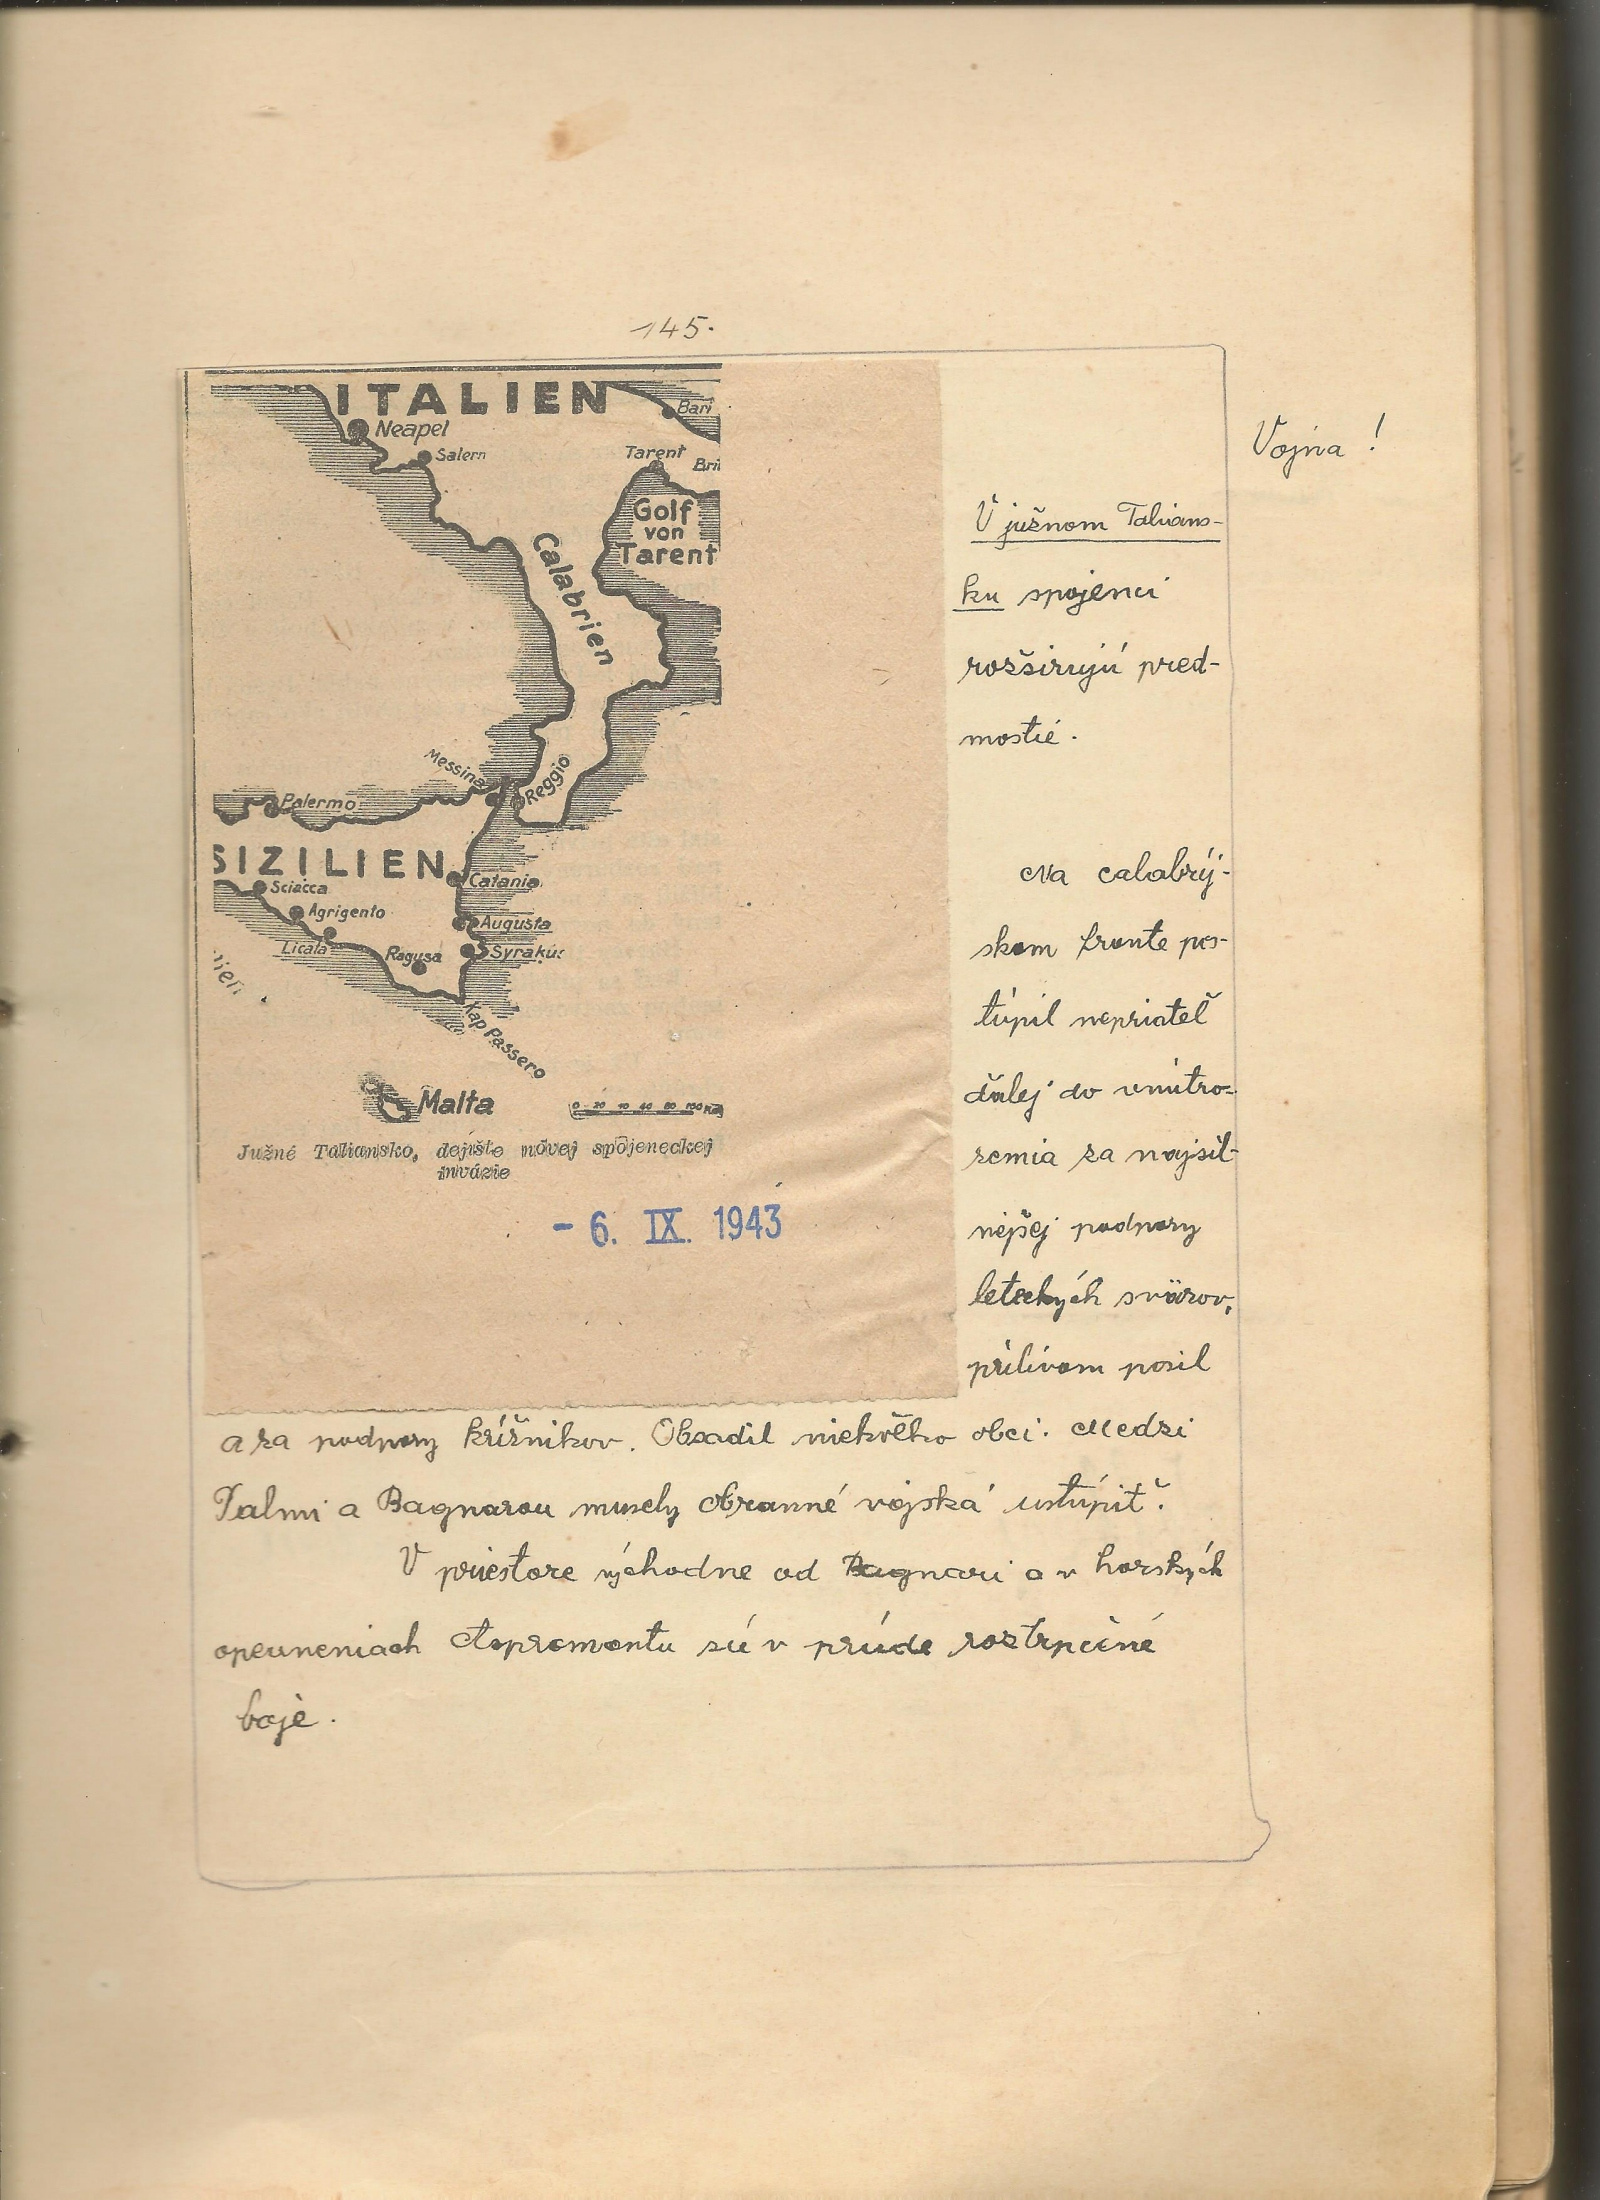 145.
ITALIEN
Bari
Neapel
Salern
Tarent
Bri
Golf
von
Tarent
Calabrien
Messina
Reggio
Palermo
SIZILIEN
Catania
Sciacca
Agrigento
Augusta
Licata
Ragusa
Syrakus
Kap Passero
Malta
Južné Taliansko, dejište novej spojeneckej
invázie
- 6. IX. 1943
Vojna !
V južnom Talians-
ku spojenci
rozširujú pred-
mostie.
Na calabrij-
skom fronte pos-
túpil nepriateľ
ďalej do vnútro-
zemia za najsil-
nejšej podpory
leteckých sväzov,
prílivom posíl
a za podpory krížnikov. Obsadil niekoľko obcí. Medzi
Palmi a Bagnarou musely obranné vojská ustúpiť.
V priestore východne od Bagnari a v horských
opevneniach Aspromontu sú v prúde roztrpčené
boje.